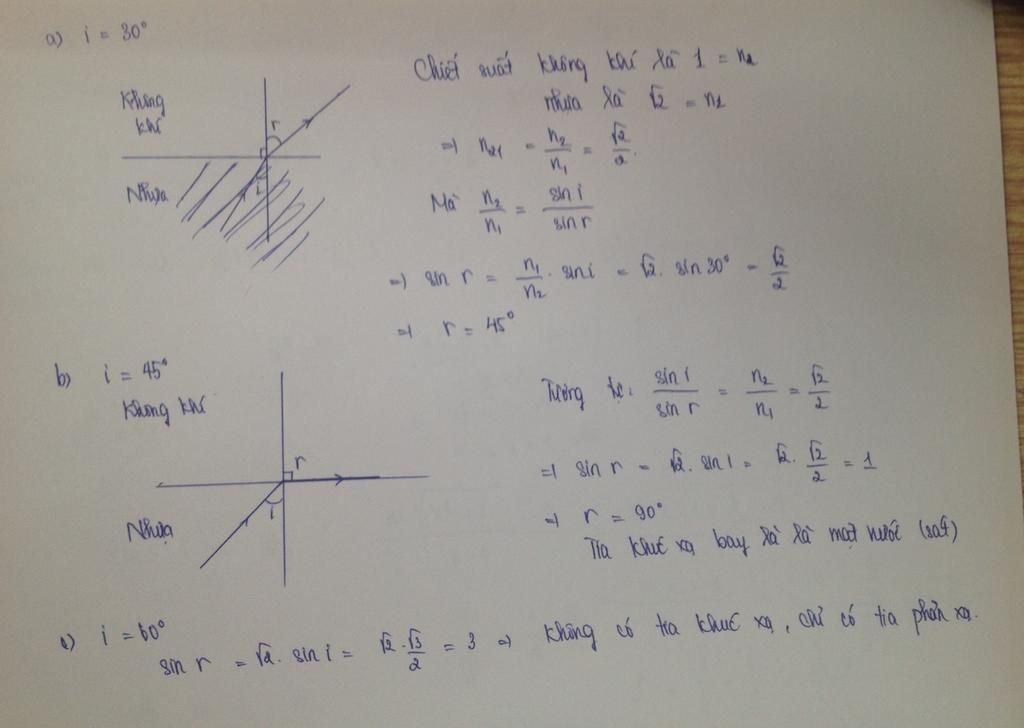 a) i = 30°
Không khí
r
i
Nhựa
Chiết suất không khí là 1 = n2
nhựa là √2 = n1
=> n21 = n2/n1 = √2/2.
Mà n2/n1 = sin i/sin r
=> sin r = n1/n2 . sin i = √2. sin 30° = √2/2
=> r = 45°
b) i = 45°
Không khí
r
i
Nhựa
Tương tự: sin i/sin r = n2/n1 = √2/2
=> sin r = √2. sin i = √2. √2/2 = 1
=> r = 90°
Tia khúc xạ bay là là mặt nước (sát)
c) i = 60°
sin r = √2. sin i = √2.√3/2 = 3 => Không có tia khúc xạ, chỉ có tia phản xạ.